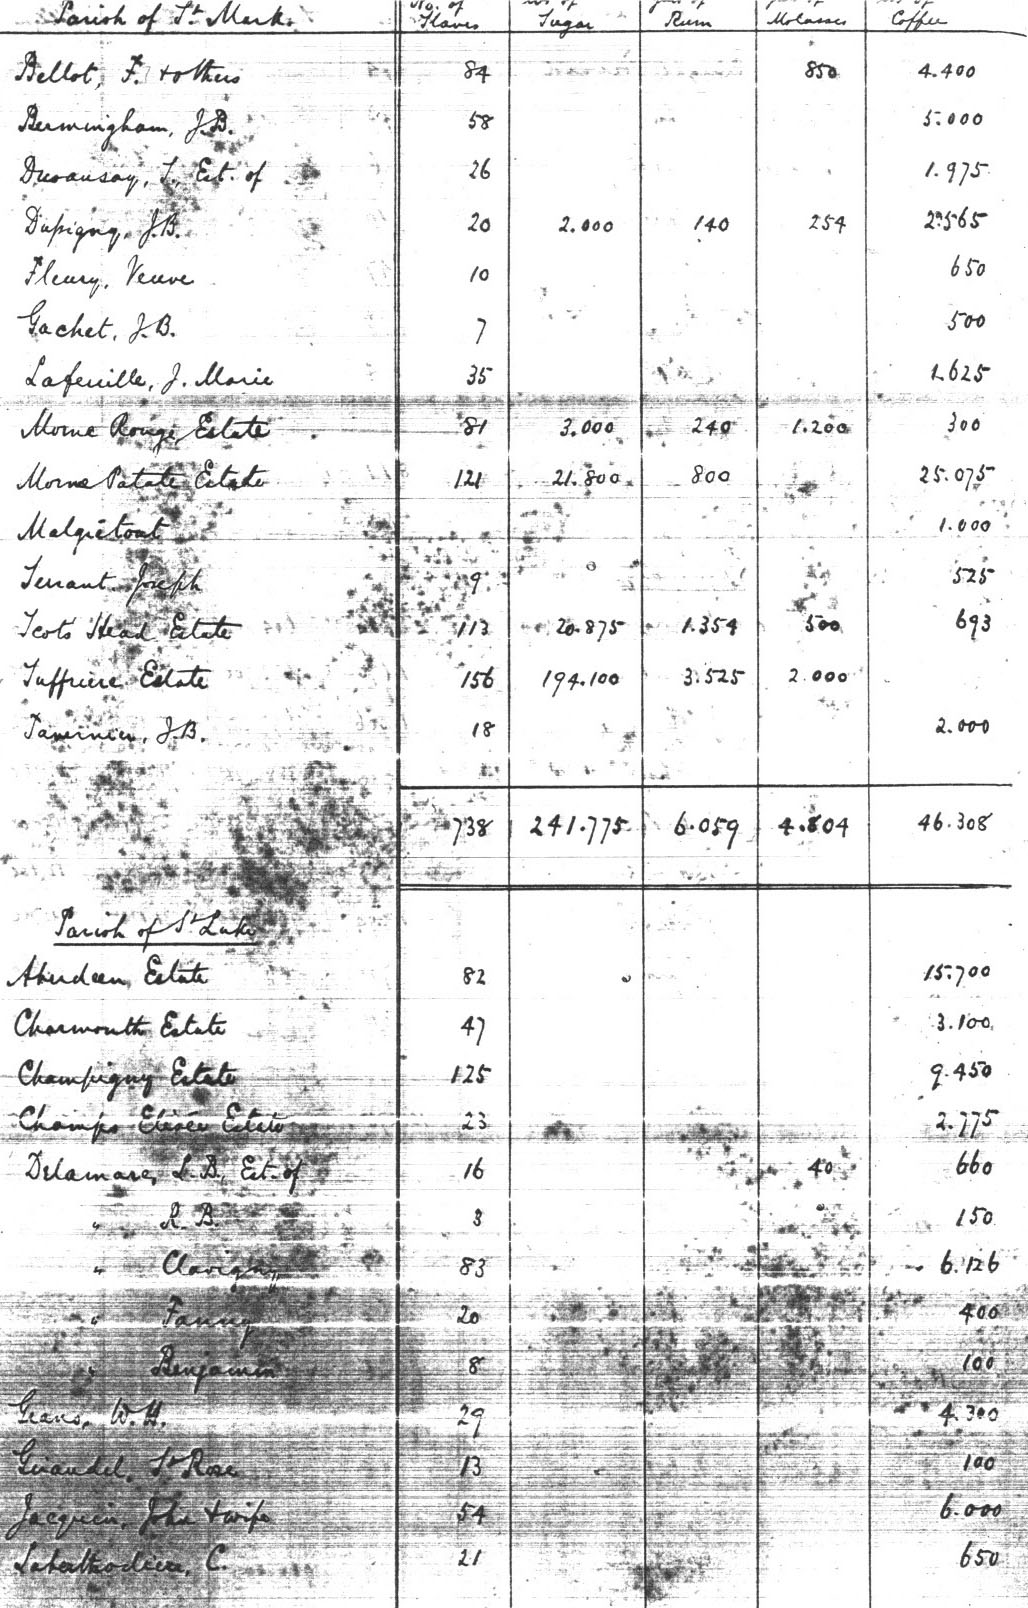 Parish of St. Mark. No. of Slaves lbs of Sugar gals of Rum gals of Molasses lbs of Coffee
Bellot, F. & others 84 850 4.400
Bermingham, J.B. 58 5.000
Duvausay, T., Est. of 26 1.975
Dupigny, J.B. 20 2.000 140 254 2.565
Fleury, Veuve 10 650
Gachet, J.B. 7 500
Lafeuille, J. Marie 35 1.625
Morne Rouge Estate 81 3.000 240 1.200 300
Morne Patate Estate 121 21.800 800 25.075
Malgrétout 1.000
Serrant Joseph 9 525
Scots Head Estate 113 20.875 1.354 500 693
Suffriere Estate 156 194.100 3.525 2.000
Tavernier, J.B. 18 2.000
738 241.775 6.059 4.804 46.308
Parish of St Luke
Aberdeen Estate 82 15.700
Charmouth Estate 47 3.100
Champigny Estate 125 9.450
Champs Elisées Estate 23 2.775
Delamare, L.B., Est. of 16 40 660
" R. B. 3 150
" Clavigny 83 6.126
" Fanny 20 400
" Benjamin 8 100
W.H. 29 4.300
Giraudel, St Rose 13 100
Jacquin, John & wife 54 6.000
C. 21 650